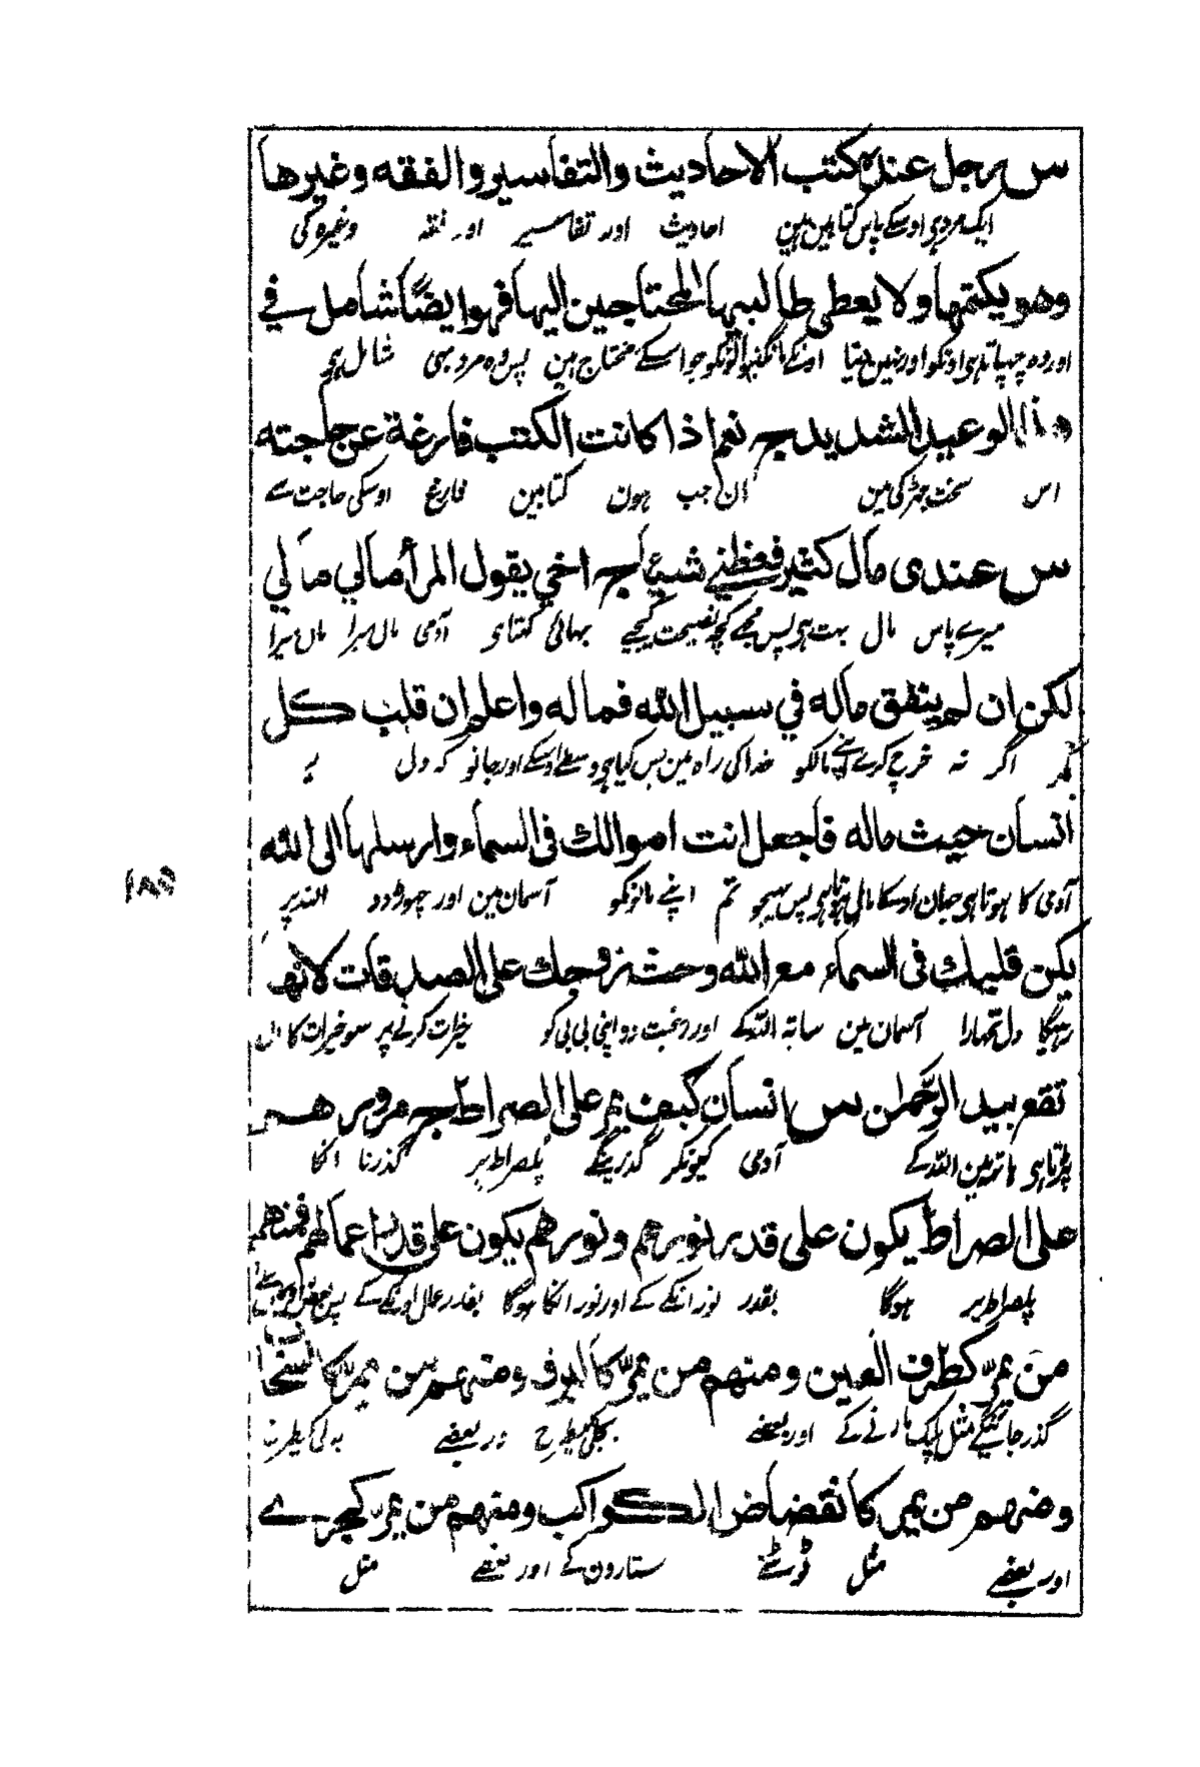 س رجل عنده كتب الاحاديث والتفاسير والفقه وغيرها
ایک مرد ہی اوسکے پاس کتابین ہین احادیث اور تفاسیر اور فقہ وغیرہ کی
وهو يكتمها ولا يعطى طالبيها المحتاجين اليها فهو ايضًا شامل في
اور وہ چہپاتا ہی اونکو اور نہین دیتا اونکے مانگنیوالونکو جو اسکے محتاج ہین پس وہ مرد بہی شامل ہی
هذا الوعيد الشديد جـ نعم اذا كانت الكتب فارغة عن حاجته
اس سخت جہڑکی مین ان جب ہون کتابین فارغ اوسکی حاجت سے
س عندى مال كثير فعظني شيئا جـ اخي يقول المرأ مالي مالي
میرے پاس مال بہت ہی پس مجھے کچھ نصیحت کیجیے بہائی کہتا ہی آدمی مال میرا مال میرا
لكن ان لم ينفق ماله في سبيل الله فما له واعلم ان قلب كل
مگر اگر نہ خرچ کرے اپنے مالکو خدا کی راہ مین پس کیا ہی واسطے اوسکے اور جانو کہ دل ہر
انسان حيث ماله فاجعل انت اموالك فى السماء وارسلها الى الله
آدمی کا ہوتا ہی جہان اوسکا مال ہوتا ہی پس بہیجو تم اپنے مالونکو آسمان مین اور چہوڑ دو اللہ پر
يكن قلبك فى السماء مع الله وحث زوجك على الصدقات لانها
رہیگا دل تمہارا آسمان مین ساتہ اللہ کے اور رغبت دو اپنی بی بی کو خیرات کرنے پر سو خیرات کا مال
تقع بيد الرحمان س انسان كيف يمر على الصراط جـ مرورهم
پڑتا ہی ہاتہ مین اللہ کے آدمی کیونکر گذرینگے پلصراط پر گذرنا انکا
على الصراط يكون على قدر نورهم ونورهم يكون على قدر اعمالهم فمنهم
پلصراط پر ہوگا بقدر نور انکے کے اور نور انکا ہوگا بقدر اعمال اونکے کے پس بعضے
من يمرّ كطرف العين ومنهم من يمرّ كالبرق ومنهم من يمرّ كالسحاب
گذر جائینگے مثل پلک مارنے کے اور بعضے بجلی کیطرح اور بعضے بدلی کیطرح
ومنهم من يمر كانقضاض الكواكب ومنهم من يمر كجرے
اور بعضے مثل ٹوٹنے ستارون کے اور بعضے مثل